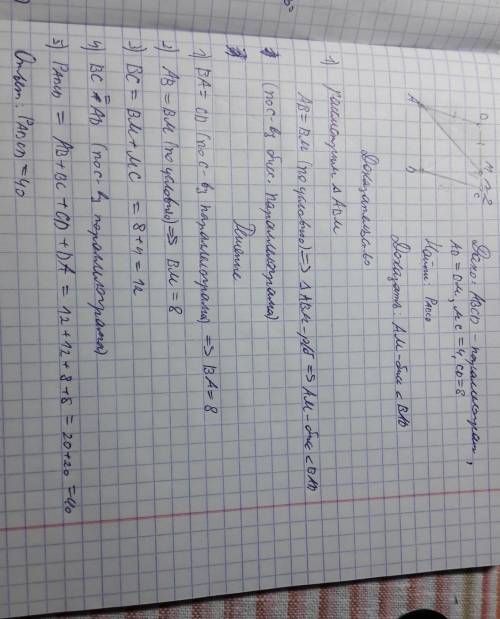 Дано: ABCD - параллелограм,
AB = BM, MC = 4, CD = 8
Найти: PABCD
Доказать: AM - бис < BAD
A
B
M
C
D
Доказательство
1) рассмотрим △ ABM
AB = BM (по условию) => △ ABM - р/б => AM - бис < BAD
(по св-ву бис. параллелограма)
Решение
1) BA = CD (по с-ву параллелограма) => BA = 8
2) AB = BM (по условию) => BM = 8
3) BC = BM + MC = 8 + 4 = 12
4) BC = AD (по с-ву параллелограма)
5) PABCD = AB + BC + CD + DA = 12 + 12 + 8 + 8 = 20 + 20 = 40
Ответ: PABCD = 40